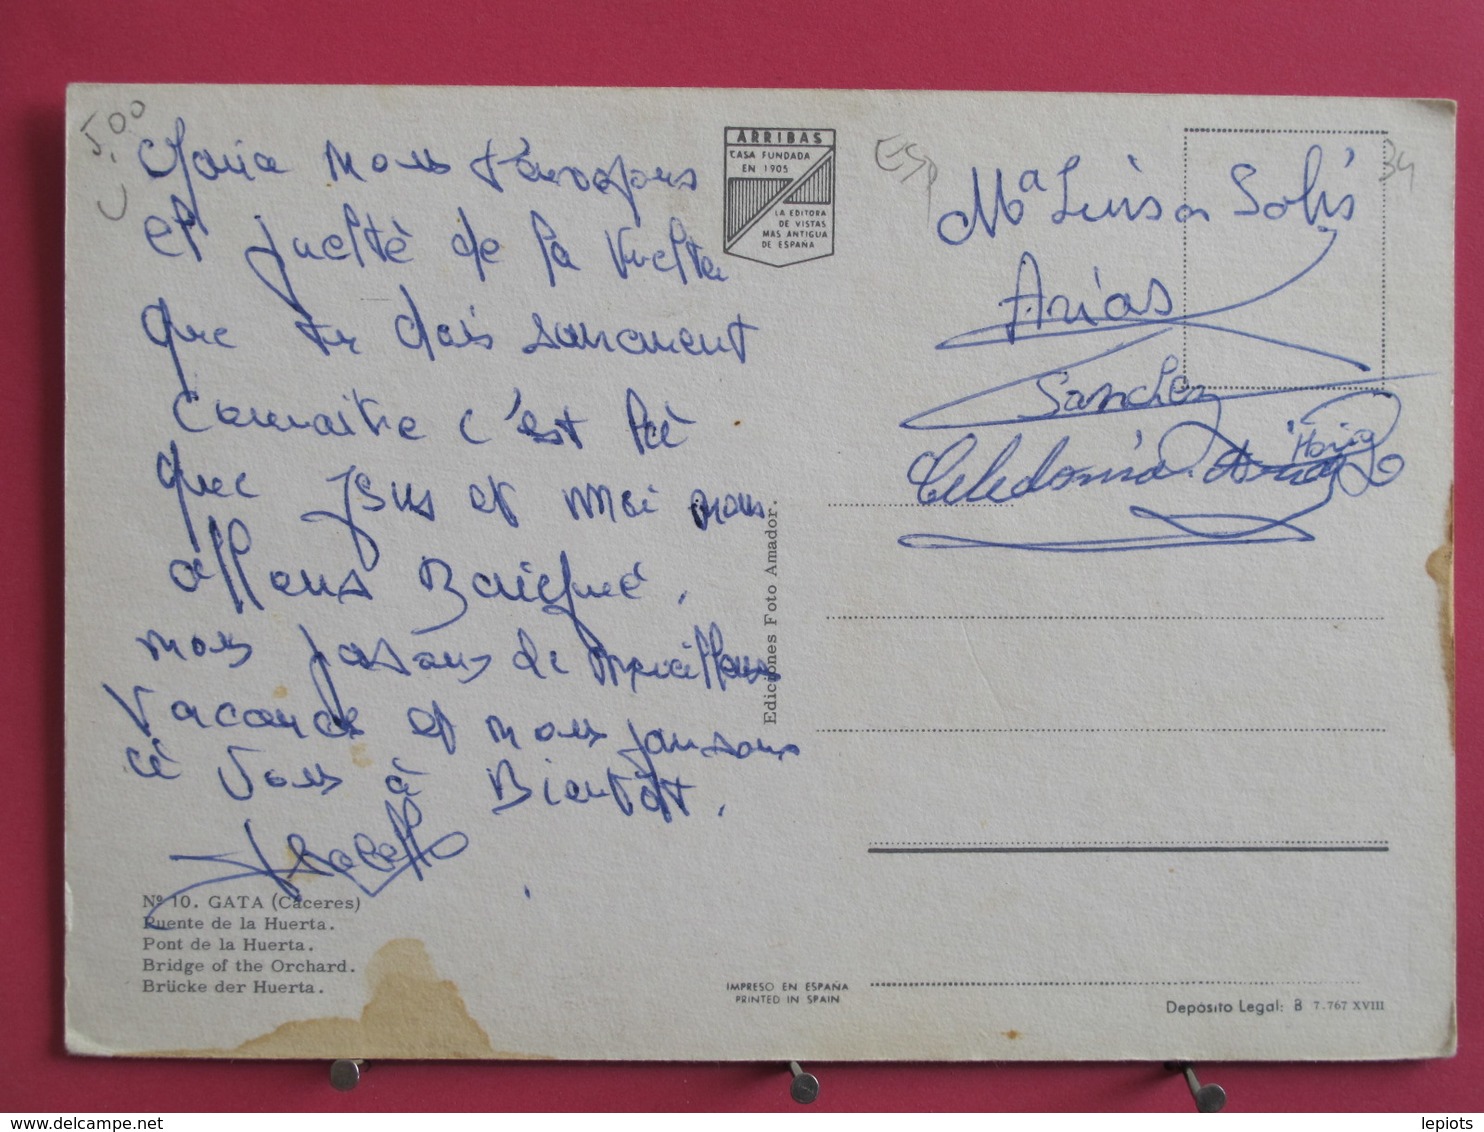 5.00
Maria nous t'envoyons
et de la
que tu dois surement
connaitre c'est là
que Jsus et moi nous
allons Baigné.
nous passons de merveilleus
vacance et nous pansons
à vous à Bientôt.
Isabelle
Nº 10. GATA (Cáceres)
Puente de la Huerta.
Pont de la Huerta.
Bridge of the Orchard.
Brücke der Huerta.
ARRIBAS
CASA FUNDADA
EN 1905
LA EDITORA
DE VISTAS
MAS ANTIGUA
DE ESPAÑA
Ediciones Foto Amador.
IMPRESO EN ESPAÑA
PRINTED IN SPAIN
ESP
34
Mª Luisa Solis
Arias
Sanchez
Celedonia Maria
Depósito Legal: B 7.767 XVIII
lepiots